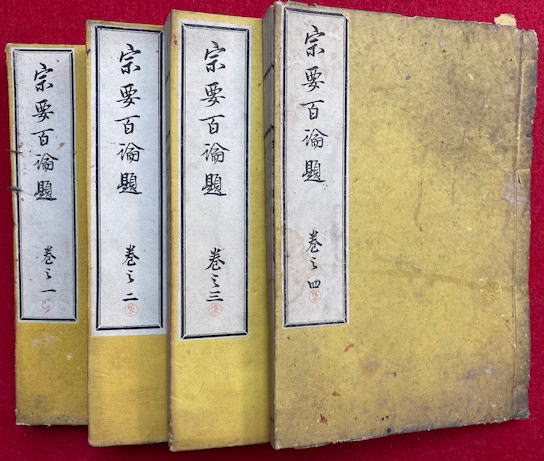 宗要百論題 卷之一
宗要百論題 卷之二
宗要百論題 卷之三
宗要百論題 卷之四